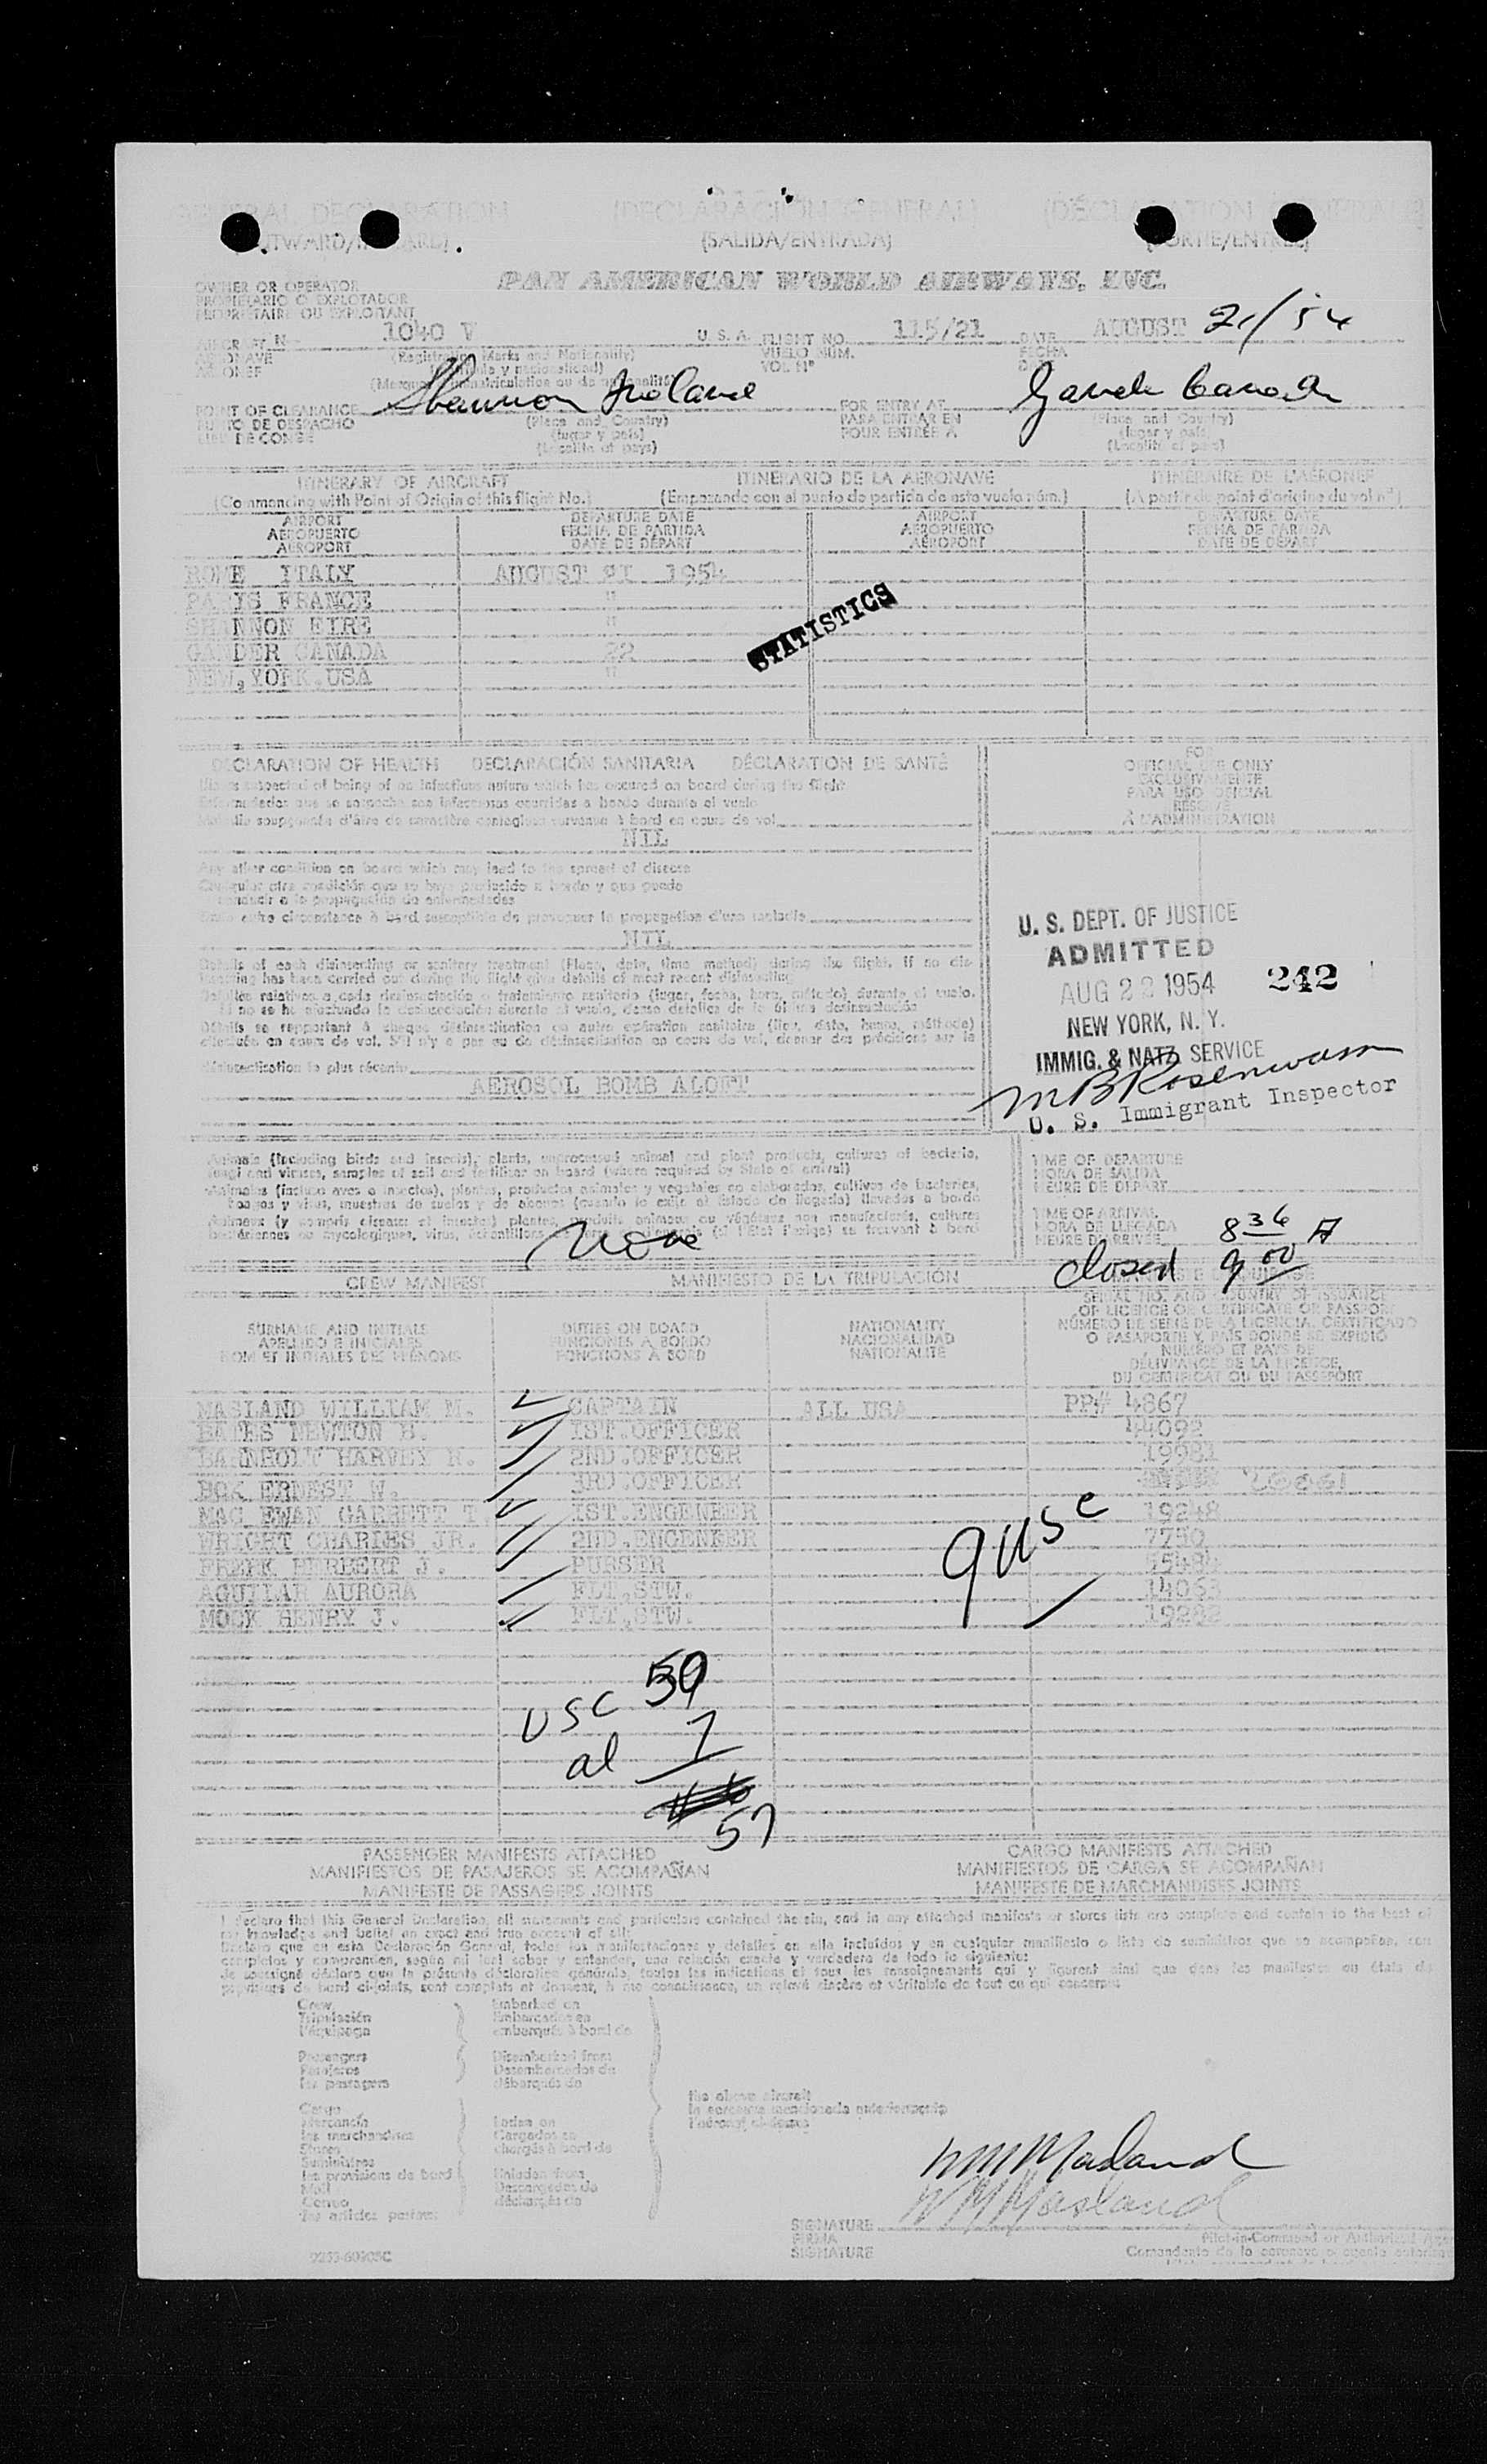 GENERAL DECLARATION (DECLARACIÓN GENERAL)
(OUTWARD/INWARD) (SALIDA/ENTRADA) (SORTIE/ENTRÉE)
OWNER OR OPERATOR PAN AMERICAN WORLD AIRWAYS, INC.
PROPIETARIO O EXPLOTADOR
PROPRIETAIRE OU EXPLOITANT
AIRCRAFT N 1040 V U. S. A. FLIGHT NO. 115/21 DATE AUGUST 21/54
AERONAVE (Registration Marks and Nationality) VUELO NÚM. FECHA
VOL Nº
POINT OF CLEARANCE Shannon Ireland FOR ENTRY AT Gander Canada
PUNTO DE DESPACHO (Place and Country) PARA ENTRAR EN (Place and Country)
LIEU DE CONGÉ (lugar y país) POUR ENTRÉE A (lugar y país)
(Localité et pays) (Localité et pays)
ITINERARY OF AIRCRAFT ITINERARIO DE LA AERONAVE ITINÉRAIRE DE L'AÉRONEF
(Commencing with Point of Origin of this flight No.) (Empezando con el punto de partida de este vuelo núm.) (A partir du point d'origine du vol nº)
AIRPORT DEPARTURE DATE AIRPORT DEPARTURE DATE
AEROPUERTO FECHA DE PARTIDA AEROPUERTO FECHA DE PARTIDA
AÉROPORT DATE DE DÉPART AÉROPORT DATE DE DÉPART
ROME ITALY AUGUST 21 1954
PARIS FRANCE "
STATISTICS
SHANNON EIRE "
GANDER CANADA 22
NEW, YORK.USA "
DECLARATION OF HEALTH DECLARACIÓN SANITARIA DÉCLARATION DE SANTÉ
FOR
OFFICIAL USE ONLY
EXCLUSIVAMENTE
PARA USO OFICIAL
RÉSERVÉ
À L'ADMINISTRATION
Illness suspected of being of an infectious nature which has occured on board during the flight
Enfermedades que se sospecha son infecciosas ocurridas a bordo durante el vuelo
Maladie soupçonnée d'être de caractère contagieux survenue à bord en cours de vol
NIL
Any other condition on board which may lead to the spread of disease
Cualquier otra condición que se haya producido a bordo y que puede
conducir a la propagación de enfermedades
Toute autre circonstance à bord susceptible de provoquer la propagation d'une maladie
NIL
Details of each disinsecting or sanitary treatment (Place, date, time method) during the flight. If no dis-
insecting has been carried out during the flight give details of most recent disinsecting
Detalles relativos a cada desinsectación o tratamiento sanitario (lugar, fecha, hora, método) durante el vuelo.
Si no se ha efectuado la desinsectación durante el vuelo, dense detalles de la última desinsectación
Détails se rapportant à chaque désinsectisation ou autre opération sanitaire (lieu, date, heure, méthode)
effectuée en cours de vol. S'il n'y a pas eu de désinsectisation en cours de vol, donner des précisions sur la
désinsectisation la plus récente
AEROSOL BOMB ALOFT
U. S. DEPT. OF JUSTICE
ADMITTED
AUG 22 1954 242
NEW YORK, N. Y.
IMMIG. & NATZ. SERVICE
M B Rosenwasn
U. S. Immigrant Inspector
Animals (including birds and insects), plants, unprocessed animal and plant products, cultures of bacteria,
fungi and viruses, samples of soil and fertilizer on board (where required by State of arrival)
Animales (incluso aves e insectos), plantas, productos animales y vegetales no elaborados, cultivos de bacterias,
hongos y virus, muestras de suelos y de abonos (cuando lo exija el Estado de llegada) llevados a bordo
Animaux (y compris oiseaux et insectes) plantes, produits animaux ou végétaux non manufacturés, cultures
bactériennes ou mycologiques, virus, échantillons (si l'État l'exige) se trouvant à bord
None
TIME OF DEPARTURE
HORA DE SALIDA
HEURE DE DÉPART
TIME OF ARRIVAL
HORA DE LLEGADA 8 36 A
HEURE D'ARRIVÉE
closed 9 00
CREW MANIFEST MANIFIESTO DE LA TRIPULACIÓN
SURNAME AND INITIALS DUTIES ON BOARD NATIONALITY SERIAL NO. AND COUNTRY OF ISSUANCE
APELLIDO E INICIALES FUNCIONES A BORDO NACIONALIDAD OF LICENCE OR CERTIFICATE OR PASSPORT
NOM ET INITIALES DES PRÉNOMS FONCTIONS À BORD NATIONALITÉ NÚMERO DE SERIE DE LA LICENCIA, CERTIFICADO
O PASAPORTE Y PAÍS DONDE SE EXPIDIÓ
NUMÉRO ET PAYS DE
DÉLIVRANCE DE LA LICENCE,
DU CERTIFICAT OU DU PASSEPORT
MASLAND WILLIAM M. CAPTAIN ALL USA PP# 4867
BATES NEWTON B. IST.OFFICER 44092
BARNHOLT HARVEY R. 2ND.OFFICER 19981
BOK ERNEST W. 3RD.OFFICER
MAC EWAN GARRETT T. IST.ENGENEER 19248
WRIGHT CHARLES JR. 2ND.ENGENEER 7750
FREEK HERBERT J. PURSER
AGUILAR AURORA FLT.STW. 14063
MOCK HENRY J. FLT.STW. 19282
9 usc
USC 50
al 7
57
PASSENGER MANIFESTS ATTACHED CARGO MANIFESTS ATTACHED
MANIFIESTOS DE PASAJEROS SE ACOMPAÑAN MANIFIESTOS DE CARGA SE ACOMPAÑAN
MANIFESTE DE PASSAGERS JOINTS MANIFESTE DE MARCHANDISES JOINTS
I declare that this General Declaration, all statements and particulars contained therein, and in any attached manifests or stores lists are complete and contain to the best of
my knowledge and belief an exact and true account of all:
Declaro que en esta Declaración General, todas las manifestaciones y detalles en ella incluidos y en cualquier manifiesto o lista de suministros que se acompañan, son
completos y comprenden, según mi leal saber y entender, una relación exacta y verdadera de todo lo siguiente:
Je soussigné déclare que la présente déclaration générale, toutes les indications et tous les renseignements qui y figurent ainsi que dans les manifestes ou états de
provisions de bord ci-joints, sont complets et donnent, à ma connaissance, un relevé sincère et véritable de tout ce qui concerne:
Crew Embarked on
Tripulación Embarcados en
l'équipage embarqués à bord de
Passengers Disembarked from
Pasajeros Desembarcados de
les passagers débarqués de
the above aircraft
la aeronave mencionada anteriormente
l'aéronef ci-dessus
Cargo
Mercancía Laden on
les marchandises Cargados en
Stores chargés à bord de
Suministros
les provisions de bord Unladen from
Mail Descargados de
Correo déchargés de
les articles postaux
WM Masland
W M Masland
SIGNATURE
FIRMA Pilot-in-Command or Authorized
SIGNATURE Comandante de la aeronave o agente